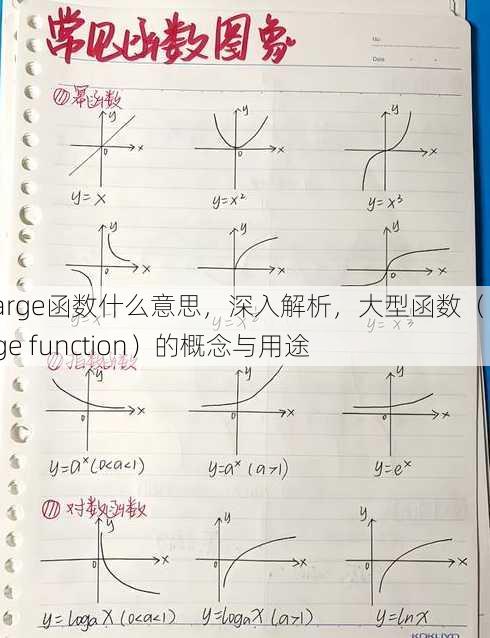 常见函数图象
No.
Date
① 幂函数
y
x
0
y=x
y
x
0
y=x²
y
x
0
y=x³
y
x
0
y
x
0
y
x
0
arge函数什么意思，深入解析，大型函数（
ge function）的概念与用途
指数函数
y
x
0
y=aˣ(0<a<1)
y
x
0
y=aˣ (a>1)
y
x
0
y=eˣ
对数函数
y
x
0
y=logₐX (0<a<1)
y
x
0
y=logₐX (a>1)
y
x
0
y=lnx
KOKUYO